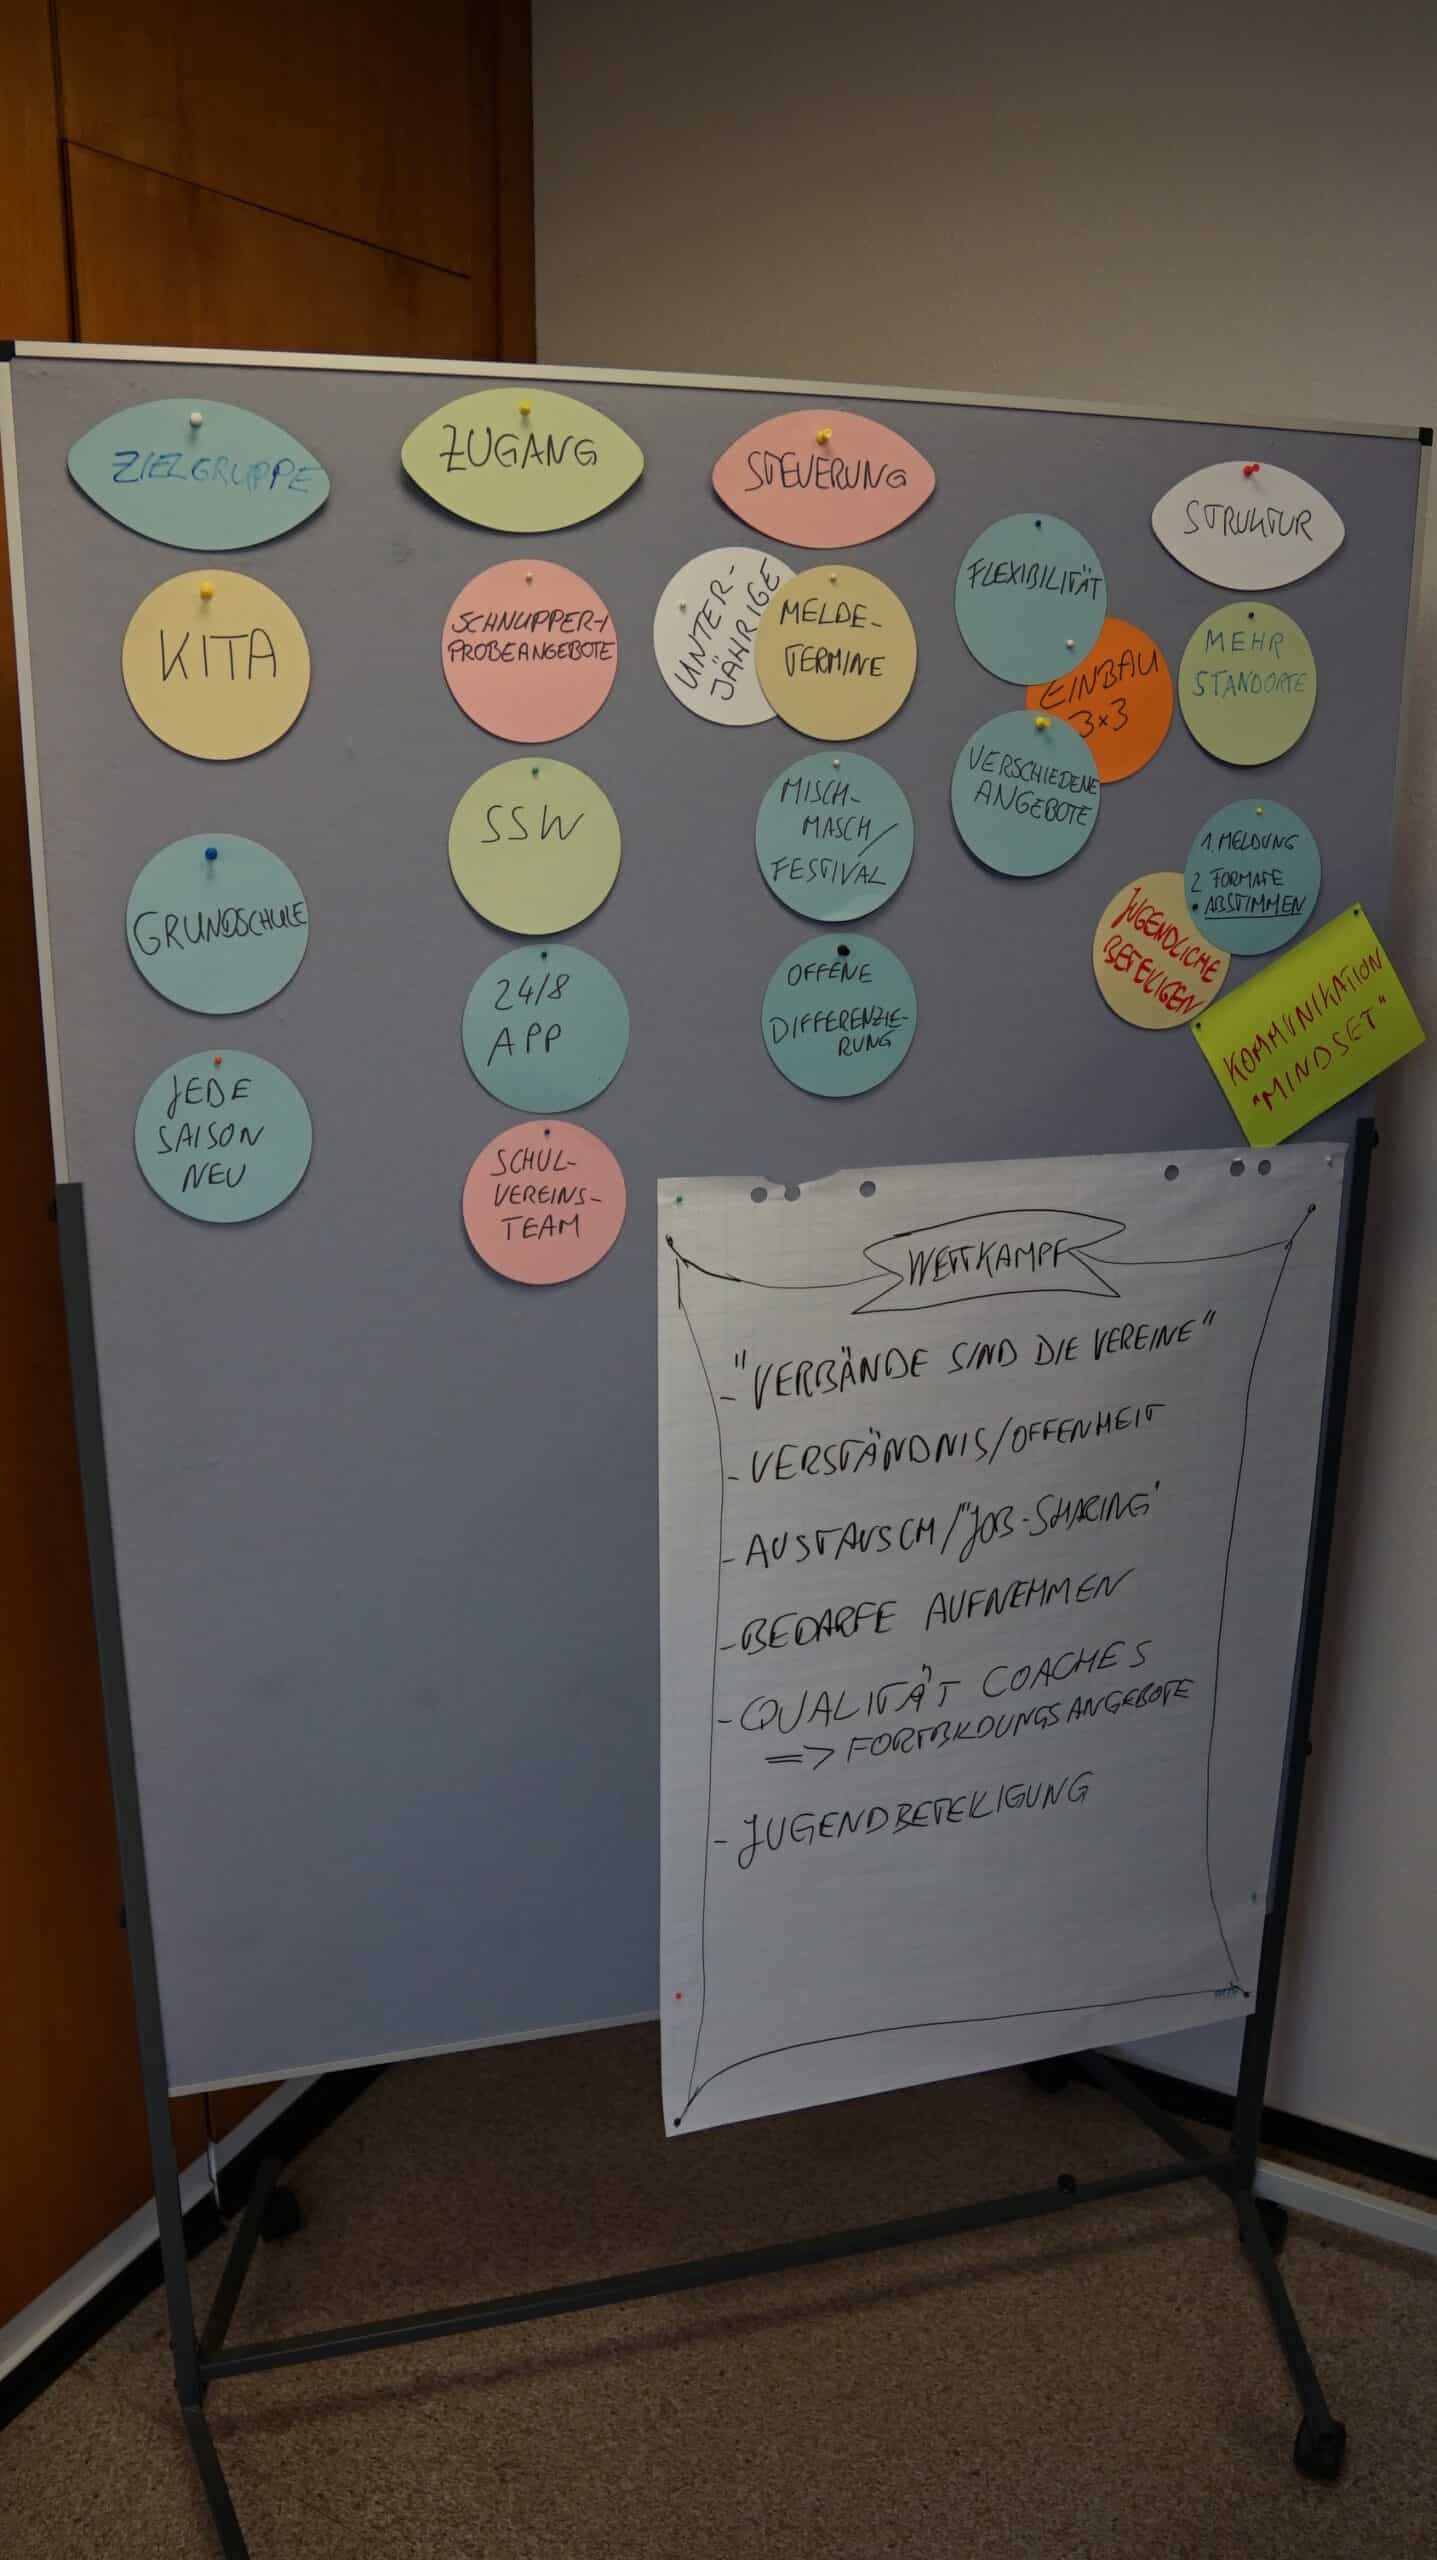 ZIELGRUPPE
KITA
GRUNDSCHULE
JEDE
SAISON
NEU
ZUGANG
SCHNUPPER-/
PROBEANGEBOTE
SSW
24/8
APP
SCHUL-
VEREINS-
TEAM
STEUERUNG
UNTER-
JÄHRIGE
MELDE-
TERMINE
MISCH-
MASCH/
FESTIVAL
OFFENE
DIFFERENZIE-
RUNG
FLEXIBILITÄT
EINBAU
3x3
VERSCHIEDENE
ANGEBOTE
STRUKTUR
MEHR
STANDORTE
1. MELDUNG
2. FORMATE
ABSTIMMEN
JUGENDLICHE
BETEILIGEN
KOMMUNIKATION
"MINDSET"
WETTKAMPF
- "VERBÄNDE SIND DIE VEREINE"
- VERSTÄNDNIS/OFFENHEIT
- AUSTAUSCH/"JOB-SHARING"
- BEDARFE AUFNEHMEN
- QUALITÄT COACHES
=> FORTBILDUNGSANGEBOTE
- JUGENDBETEILIGUNG